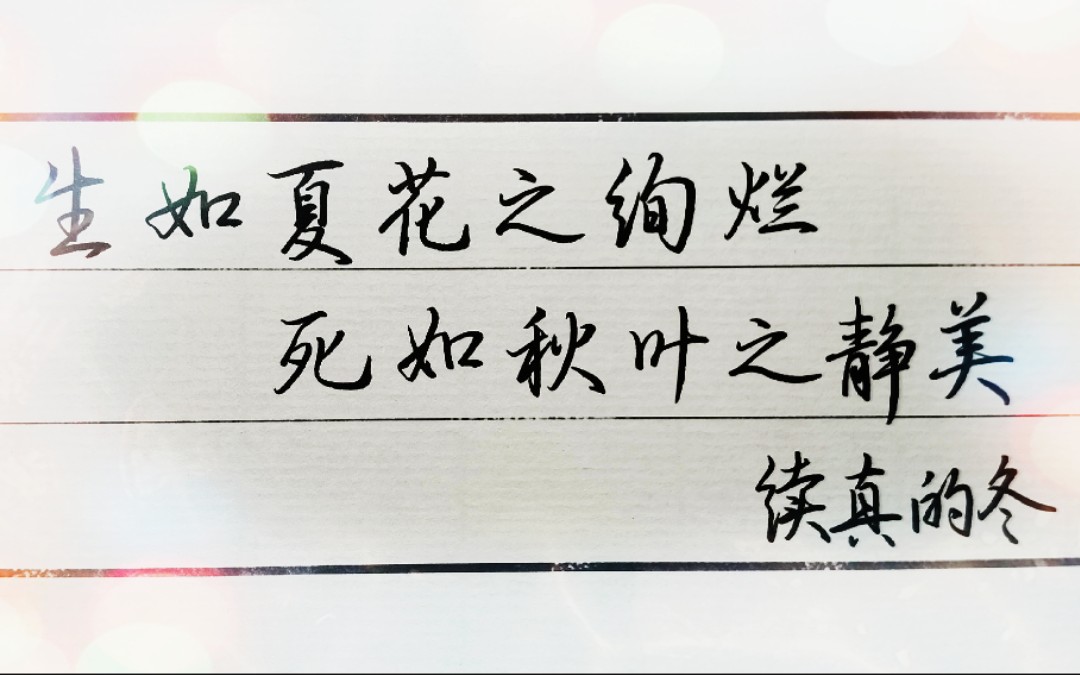 生如夏花之绚烂
死如秋叶之静美
续真的冬